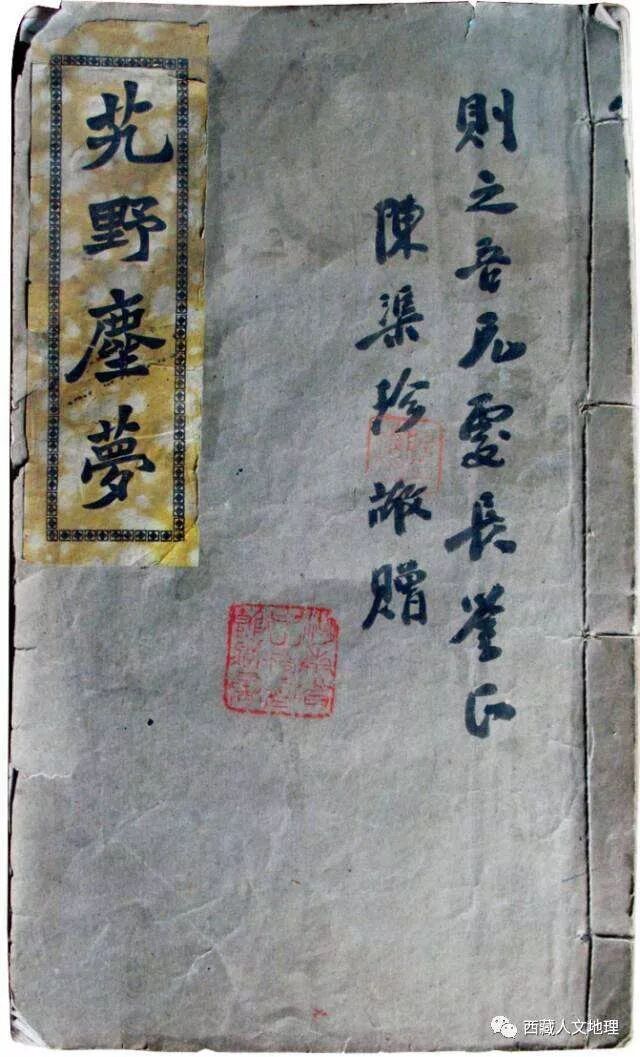 則之吾兄處長正
陳渠珍敬贈
艽野塵夢
西藏人文地理